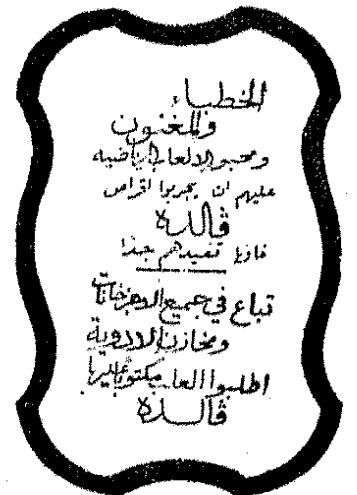 الخطباء
والمغنون
ومحبو الالعاب الرياضيه
عليهم ان يجربوا اقراص
ڤالده
فانها تفيدهم جدا
تباع في جميع الاجزخانات
ومخازن الادوية
اطلبوا العلب مكتوب عليها
ڤالده